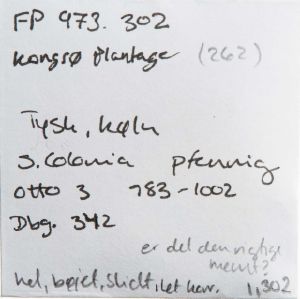 FP 973.302
Kongsø Plantage (262)
Tysk, Køln
S. Colonia pfennig
Otto 3 983-1002
Dbg. 342
er det den rigtige
mønt?
hel, bøjet, slidt, let korr. 1,302